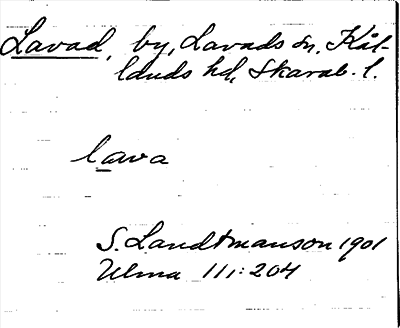 Lavad, by, Lavads sn, Kål-
lands hd, Skarab. l.
lava
S. Landtmanson 1901
Ulma 111:204